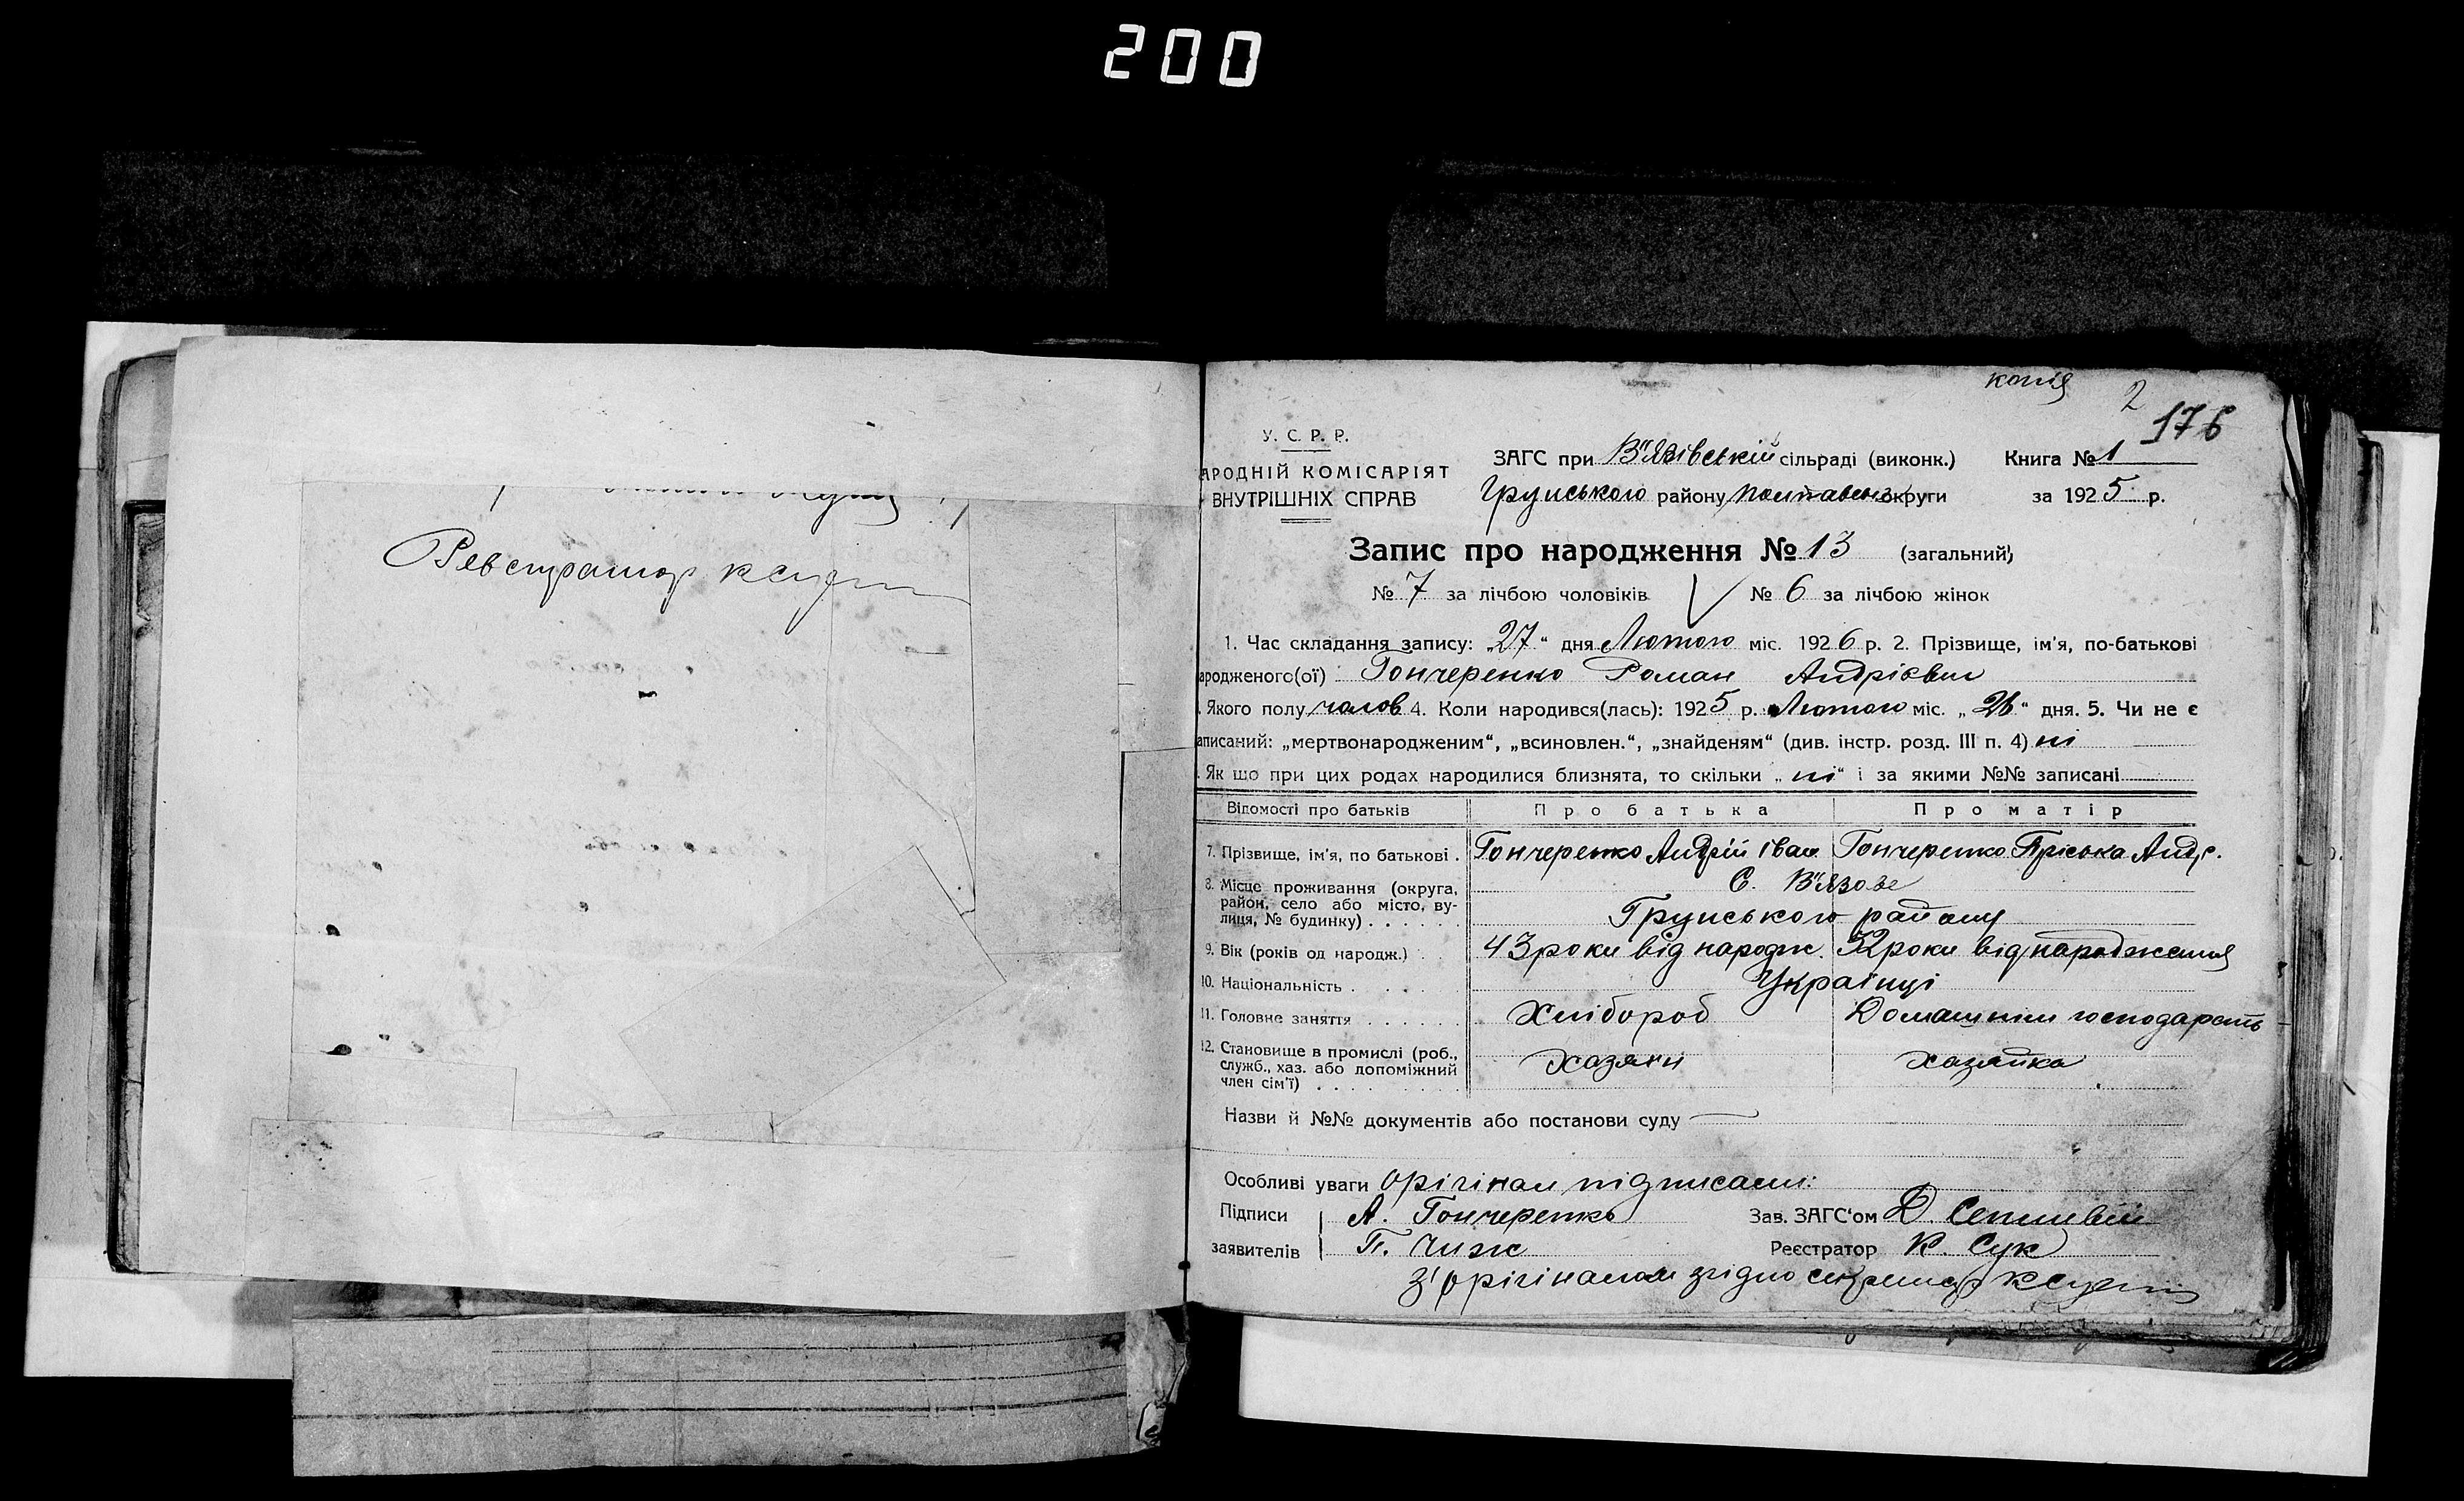 200
Реєстратор КСук
копія
2
176
У. С. Р. Р.
АРОДНІЙ КОМІСАРІЯТ
ВНУТРІШНІХ СПРАВ
ЗАГС при В'язівській сільраді (виконк.) Книга № 1
Грунського району Полтавськ округи за 1925 р.
Запис про народження № 13 (загальний)
№ 7 за лічбою чоловіків № 6 за лічбою жінок
1. Час складання запису: „27“ дня Лютого міс. 1926 р. 2. Прізвище, ім'я, по-батькові
ародженого(ої) Гончеренко Роман Андрієвич
. Якого полу чолов 4. Коли народився(лась): 1925 р. Лютого міс. „26“ дня. 5. Чи не є
аписаний: „мертвонародженим“, „всиновлен.“, „знайденям“ (див. інстр. розд. III п. 4) ні
. Як що при цих родах народилися близнята, то скільки „ні“ і за якими №№ записані
Відомості про батьків Про батька Про матір
7. Прізвище, ім'я, по батькові . Гончеренко Андрій Іван Гончеренко Пріська Андр.
8. Місце проживання (округа, район, село або місто, вулиця, № будинку) . . . . . . С. В'язове
Грунського району
9. Вік (років од народж.) 43 роки від народж. 32 роки від народження
10. Національність . . . . Українці
11. Головне заняття . . . . . . Хлібороб Домашнім господарсть
12. Становище в промислі (роб., служб., хаз. або допоміжний член сім'ї) . . . . . Хазяін хазяйка
Назви й №№ документів або постанови суду
Особливі уваги Орігінал підписали:
Підписи А. Гончеренко Зав. ЗАГС'ом Д.
заявителів П. Чиж Реєстратор К. Сук
З'орігіналом згідно секретар КСук